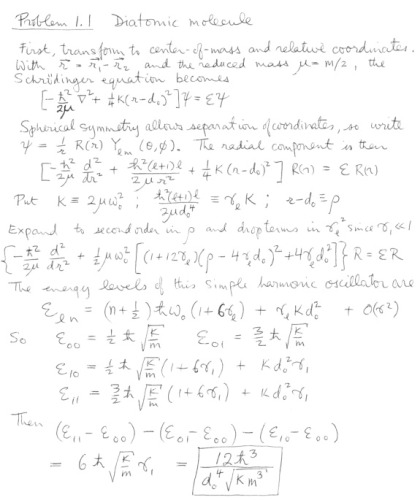 Problem 1.1 Diatomic molecule
First, transform to center-of-mass and relative coordinates.
With r⃗ = r⃗₁ - r⃗₂ and the reduced mass μ = m/2, the
Schrödinger equation becomes
[-ħ²/2μ ∇² + ¼K(r-d₀)²]ψ = εψ
Spherical symmetry allows separation of coordinates, so write
ψ = 1/r R(r) Yₗₘ(θ,φ). The radial component is then
[-ħ²/2μ d²/dr² + ħ²(ℓ+1)ℓ/2μr² + ¼K(r-d₀)²] R(r) = ε R(r)
Put K ≡ 2μω₀² ; ħ²(ℓ+1)ℓ/2μd₀⁴ ≡ γₗK ; r-d₀ ≡ ρ
Expand to second order in ρ and drop terms in γₗ² since γₗ ≪ 1
{-ħ²/2μ d²/dr² + ½μω₀²[(1+12γₗ)(ρ-4γₗd₀)² + 4γₗd₀²]} R = εR
The energy levels of this simple harmonic oscillator are
εₗₙ = (n+½)ħω₀(1+6γₗ) + γₗKd₀² + O(γ²)
So ε₀₀ = ½ħ√(K/m) ε₀₁ = 3/2 ħ√(K/m)
ε₁₀ = ½ħ√(K/m)(1+6γ₁) + Kd₀²γ₁
ε₁₁ = 3/2 ħ√(K/m)(1+6γ₁) + Kd₀²γ₁
Then (ε₁₁-ε₀₀) - (ε₀₁-ε₀₀) - (ε₁₀-ε₀₀)
= 6ħ√(K/m) γ₁ = 12ħ³/d₀⁴√(Km³)